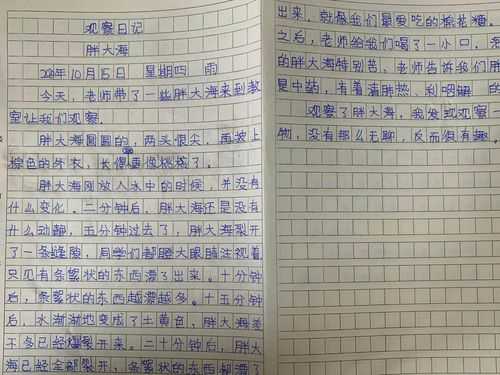 观察日记
胖大海
年10月15日 星期四 雨
今天，老师带了一些胖大海来到教
室让我们观察。
胖大海圆圆的，两头很尖，再披上
棕色的外衣，长得更像橄榄了。
胖大海刚放入水中的时候，并没有
什么变化。二分钟后，胖大海还是没有
什么动静，五分钟过去了，胖大海裂开
了一条缝隙，同学们都瞪大眼睛注视着
只见有条絮状的东西漂了出来。十分钟
后，条絮状的东西越漂越多。十五分钟
后，水渐渐地变成了土黄色，胖大海差
不多已经爆裂开来。二十分钟后，胖大
海已经全部裂开，条絮状的东西都漂了
出来，就像我们最爱吃的棉花糖。
之后，老师给我们喝了一小口，
的胖大海特别苦，老师告诉我们胖
是中药，有着清肺热、利咽解 的
观察了胖大海，我发现观察一
物，没有那么无聊，反而很有趣。